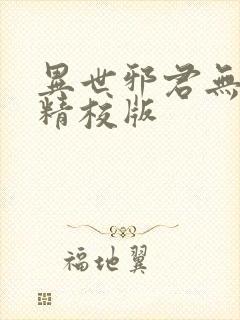 異世邪君無
精校版
福地翼